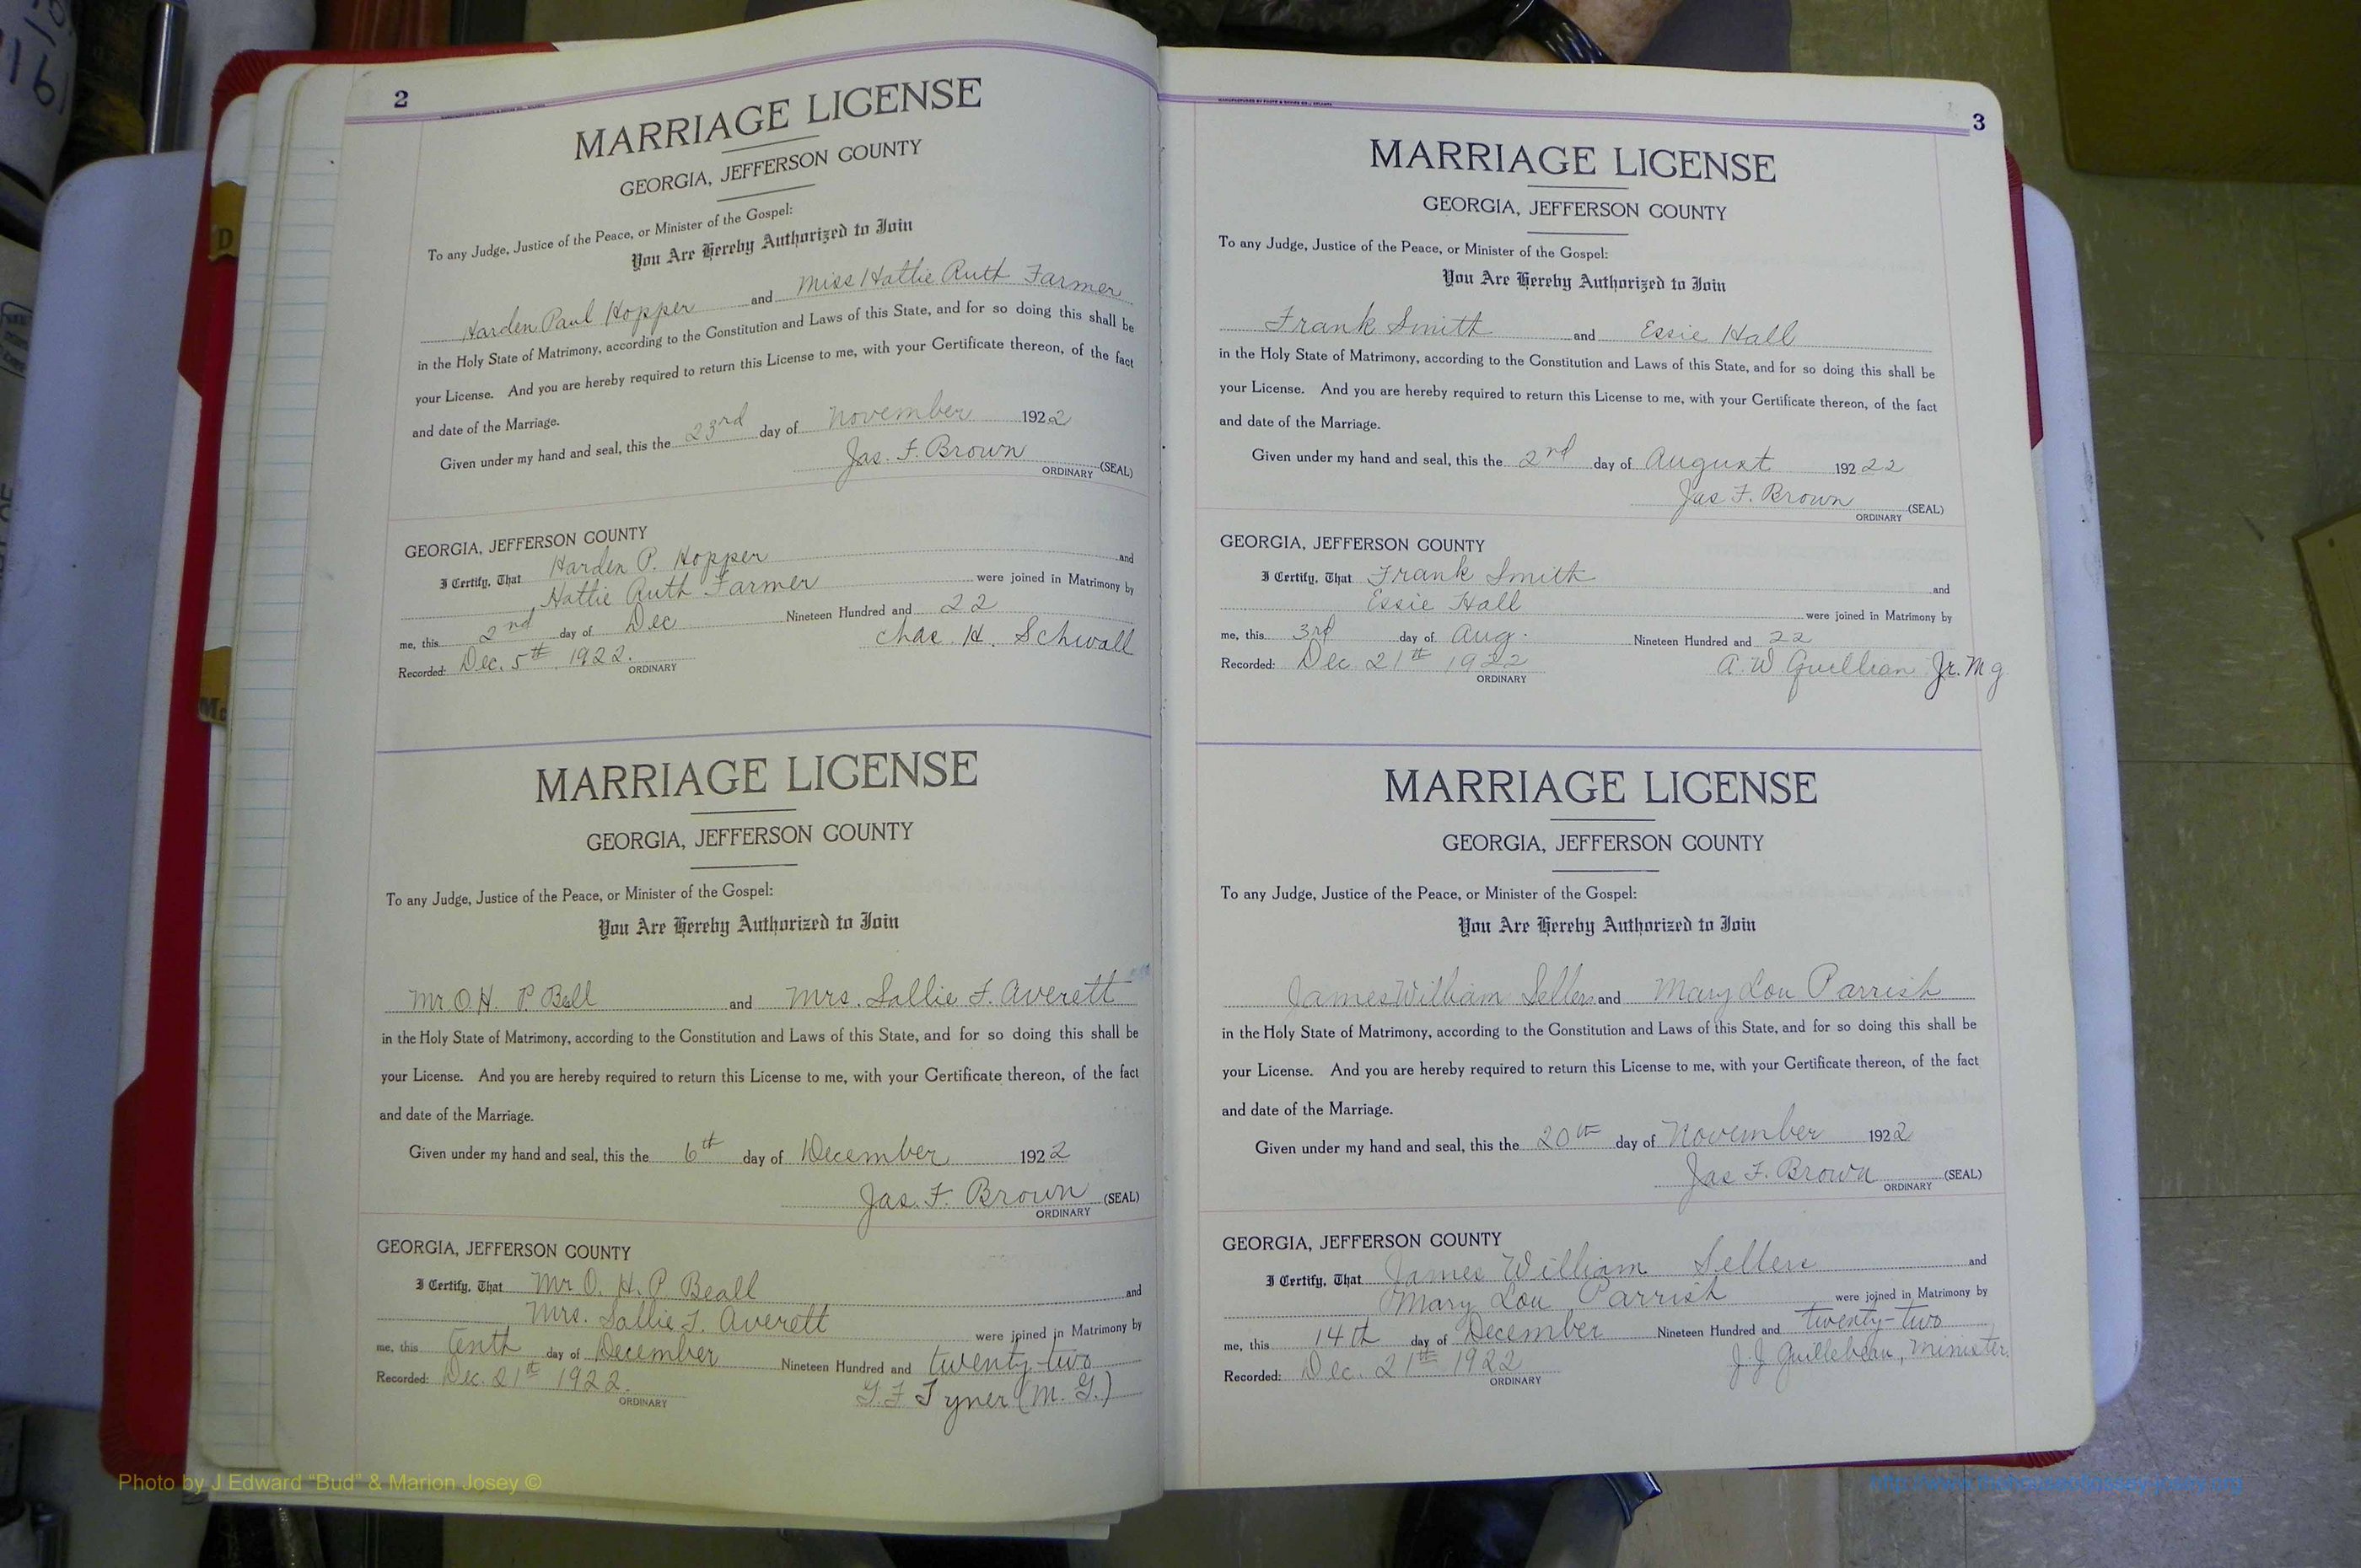 2
MARRIAGE LICENSE
GEORGIA, JEFFERSON COUNTY
To any Judge, Justice of the Peace, or Minister of the Gospel:
You Are Hereby Authorized to Join
Harden Paul Hopper and Miss Hattie Ruth Farmer
in the Holy State of Matrimony, according to the Constitution and Laws of this State, and for so doing this shall be
your License. And you are hereby required to return this License to me, with your Certificate thereon, of the fact
and date of the Marriage.
Given under my hand and seal, this the 23rd day of November 1922
Jas. F. Brown (SEAL)
ORDINARY
GEORGIA, JEFFERSON COUNTY
I Certify, That Harden P. Hopper and
Hattie Ruth Farmer were joined in Matrimony by
me, this 2nd day of Dec Nineteen Hundred and 22
Recorded: Dec. 5th, 1922. Chas H. Schwall
ORDINARY
MARRIAGE LICENSE
GEORGIA, JEFFERSON COUNTY
To any Judge, Justice of the Peace, or Minister of the Gospel:
You Are Hereby Authorized to Join
Mr O.H. P. Bell and Mrs. Sallie F. Averett
in the Holy State of Matrimony, according to the Constitution and Laws of this State, and for so doing this shall be
your License. And you are hereby required to return this License to me, with your Certificate thereon, of the fact
and date of the Marriage.
Given under my hand and seal, this the 6th day of December 1922
Jas. F. Brown (SEAL)
ORDINARY
GEORGIA, JEFFERSON COUNTY
I Certify, That Mr O. H. P Beall and
Mrs. Sallie F. Averett were joined in Matrimony by
me, this Tenth day of December Nineteen Hundred and twenty-two
Recorded: Dec. 21st 1922. G. F Tyner (M. G.)
ORDINARY
3
MARRIAGE LICENSE
GEORGIA, JEFFERSON COUNTY
To any Judge, Justice of the Peace, or Minister of the Gospel:
You Are Hereby Authorized to Join
Frank Smith and Essie Hall
in the Holy State of Matrimony, according to the Constitution and Laws of this State, and for so doing this shall be
your License. And you are hereby required to return this License to me, with your Certificate thereon, of the fact
and date of the Marriage.
Given under my hand and seal, this the 2nd day of August 19222
Jas F. Brown (SEAL)
ORDINARY
GEORGIA, JEFFERSON COUNTY
I Certify, That Frank Smith and
Essie Hall were joined in Matrimony by
me, this 3rd day of Aug. Nineteen Hundred and 22
Recorded: Dec 21th 1922 A. W Quillian Jr. M g
ORDINARY
MARRIAGE LICENSE
GEORGIA, JEFFERSON COUNTY
To any Judge, Justice of the Peace, or Minister of the Gospel:
You Are Hereby Authorized to Join
James William Sellers and Mary Lou Parrish
in the Holy State of Matrimony, according to the Constitution and Laws of this State, and for so doing this shall be
your License. And you are hereby required to return this License to me, with your Certificate thereon, of the fact
and date of the Marriage.
Given under my hand and seal, this the 20th day of November 1922
Jas F. Brown (SEAL)
ORDINARY
GEORGIA, JEFFERSON COUNTY
I Certify, That James William Sellers and
Mary Lou Parrish were joined in Matrimony by
me, this 14th day of December Nineteen Hundred and twenty-two
Recorded: Dec. 21st 1922 J. J Guillebeau, Minister.
ORDINARY
Photo by J Edward "Bud" & Marion Josey ©